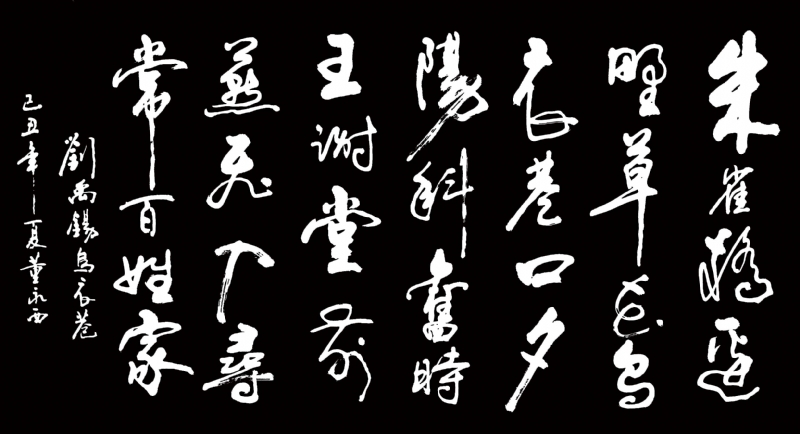 朱雀橋邊
野草花烏
衣巷口夕
陽斜舊時
王謝堂前
燕飛入尋
常百姓家
劉禹錫烏衣巷
己丑年夏董永西